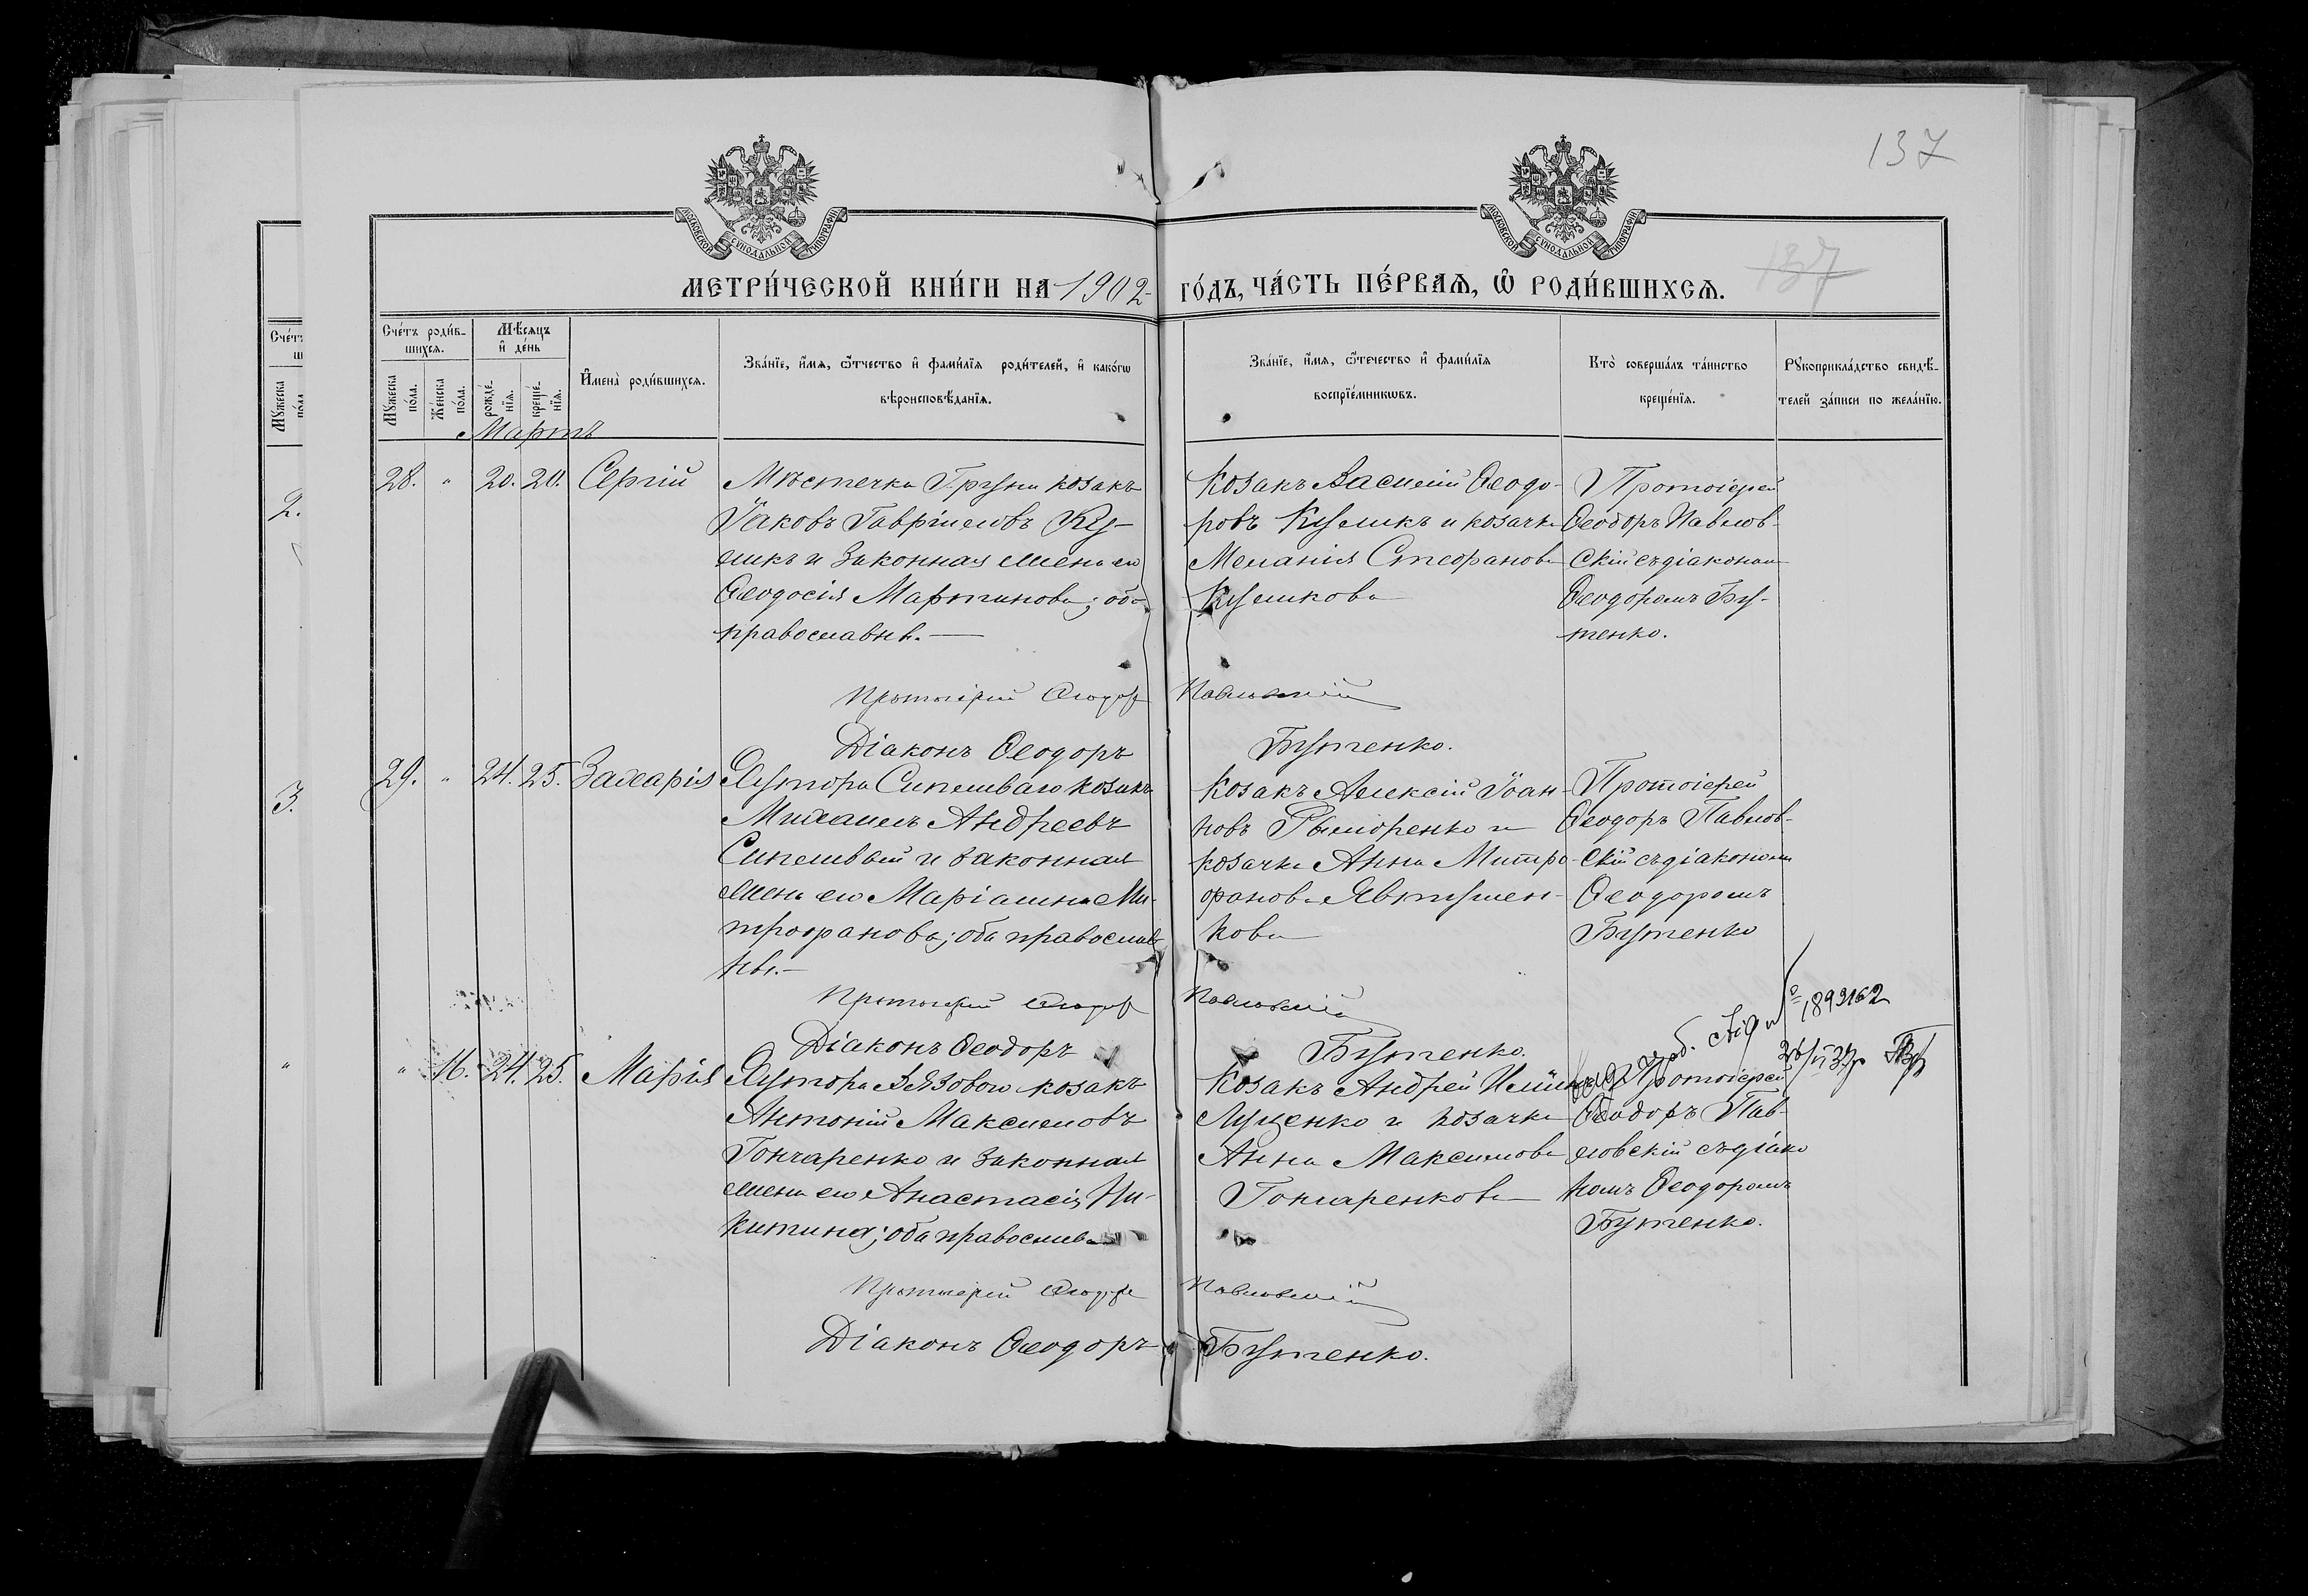 137
137
МОСКОВСКОЙ СУНОДАЛЬНОЙ ТИПОГРАФІИ
МОСКОВСКОЙ СУНОДАЛЬНОЙ ТИПОГРАФІИ
МЕТРИ́ЧЕСКОЙ КНИ́ГИ НА 1902 ГО́ДЪ, ЧА́СТЬ ПЕ́РВАѦ, Ѡ҆ РОДИ́ВШИХСѦ.
Сче́тъ роди́в-
шихсѧ.
Мꙋ́жеска по́ла.
Же́нска по́ла.
Мѣ́сѧцъ и҆ де́нь
рожде́-
нїѧ.
креще́-
нїѧ.
И҆мена̀ роди́вшихсѧ.
Зва́нїе, и҆́мѧ, ѻ҆́тчество и҆ фами́лїѧ роди́телей, и҆ како́гѡ
вѣроисповѣ́данїѧ.
Зва́нїе, и҆́мѧ, ѻ҆́течество и҆ фами́лїѧ
воспрїе́мникѡвъ.
Кто̀ соверша́лъ та́инство
креще́нїѧ.
Рꙋкоприкла́дство свидѣ́-
телей за́писи по жела́нїю.
Сче́тъ
Мꙋ́жеска по́ла
2.
3.
Мартъ
28. " 20. 20. Сергій
Мѣстечка Груни козакъ
Іаковъ Гавріиловъ Ку-
ликъ и законная жена его
Ѳеодосія Мартинова; оба
православны.
Козакъ Василій Ѳеодо-
ровъ Куликъ и козачка
Меланія Стефанова
Куликова
Протоіерей
Ѳеодоръ Павлов-
скій съ діакономъ
Ѳеодоромъ Бу-
тенко.
Протоіерей Ѳеодоръ Павловскій
Діаконъ Ѳеодоръ Бутенко.
29. " 24. 25. Захарія
Хутора Сипливаго козакъ
Михаилъ Андреевъ
Сипливый и законная
жена его Маріамна Ми-
трофанова; оба православ-
ны.
Козакъ Алексій Іоан-
новъ Рыморенко и
козачка Анна Митро-
фанова Явтушен-
кова
Протоіерей
Ѳеодоръ Павлов-
скій съ діакономъ
Ѳеодоромъ
Бутенко
Протоіерей Ѳеодоръ Павловскій
Діаконъ Ѳеодоръ Бутенко.
" 16. 24. 25. Марія
Хутора Вязоваго козакъ
Антоній Максимовъ
Гончаренко и законная
жена его Анастасія Ни-
китина; оба православ
Козакъ Андрей
Луценко и козачка
Анна Максимова
Гончаренкова
Протоіерей
Ѳеодоръ Пав-
ловскій съ діако
номъ Ѳеодоромъ
Бутенко.
Протоіерей Ѳеодоръ Павловскій
Діаконъ Ѳеодоръ Бутенко.